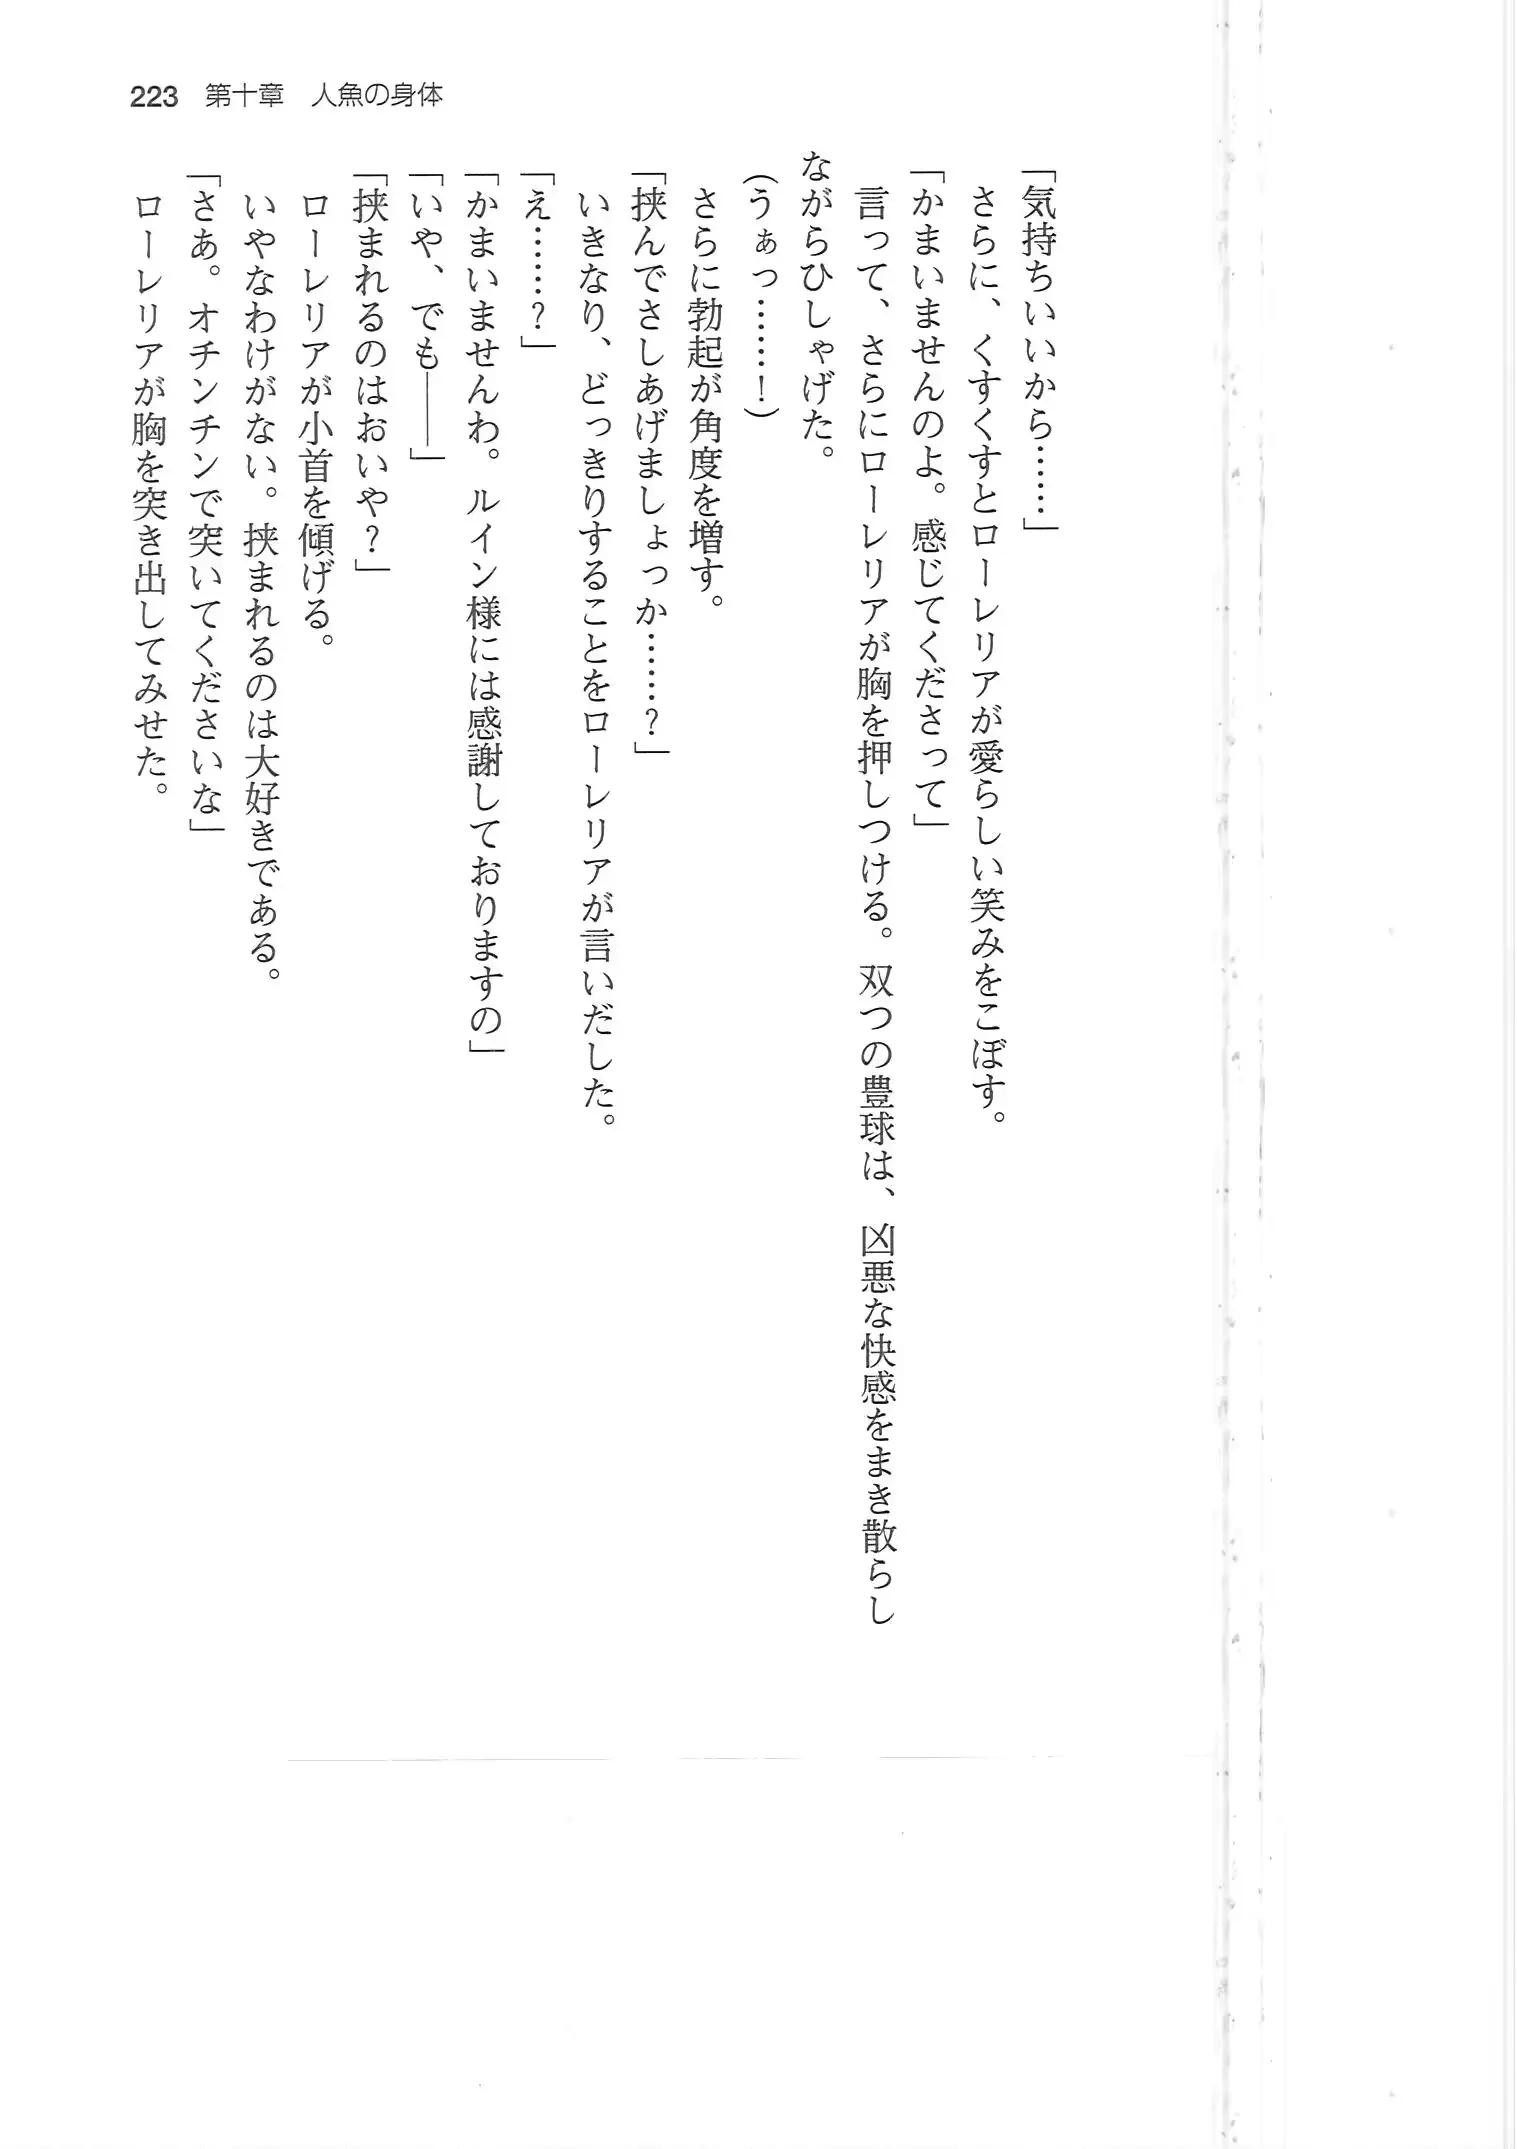 223　第十章　人魚の身体
「気持ちいいから……」
　さらに、くすくすとローレリアが愛らしい笑みをこぼす。
「かまいませんのよ。感じてくださって」
　言って、さらにローレリアが胸を押しつける。双つの豊球は、凶悪な快感をまき散らし
ながらひしゃげた。
（うぁっ……！）
　さらに勃起が角度を増す。
「挟んでさしあげましょっか……？」
　いきなり、どっきりすることをローレリアが言いだした。
「え……？」
「かまいませんわ。ルイン様には感謝しておりますの」
「いや、でも――」
「挟まれるのはおいや？」
　ローレリアが小首を傾げる。
　いやなわけがない。挟まれるのは大好きである。
「さあ。オチンチンで突いてくださいな」
　ローレリアが胸を突き出してみせた。